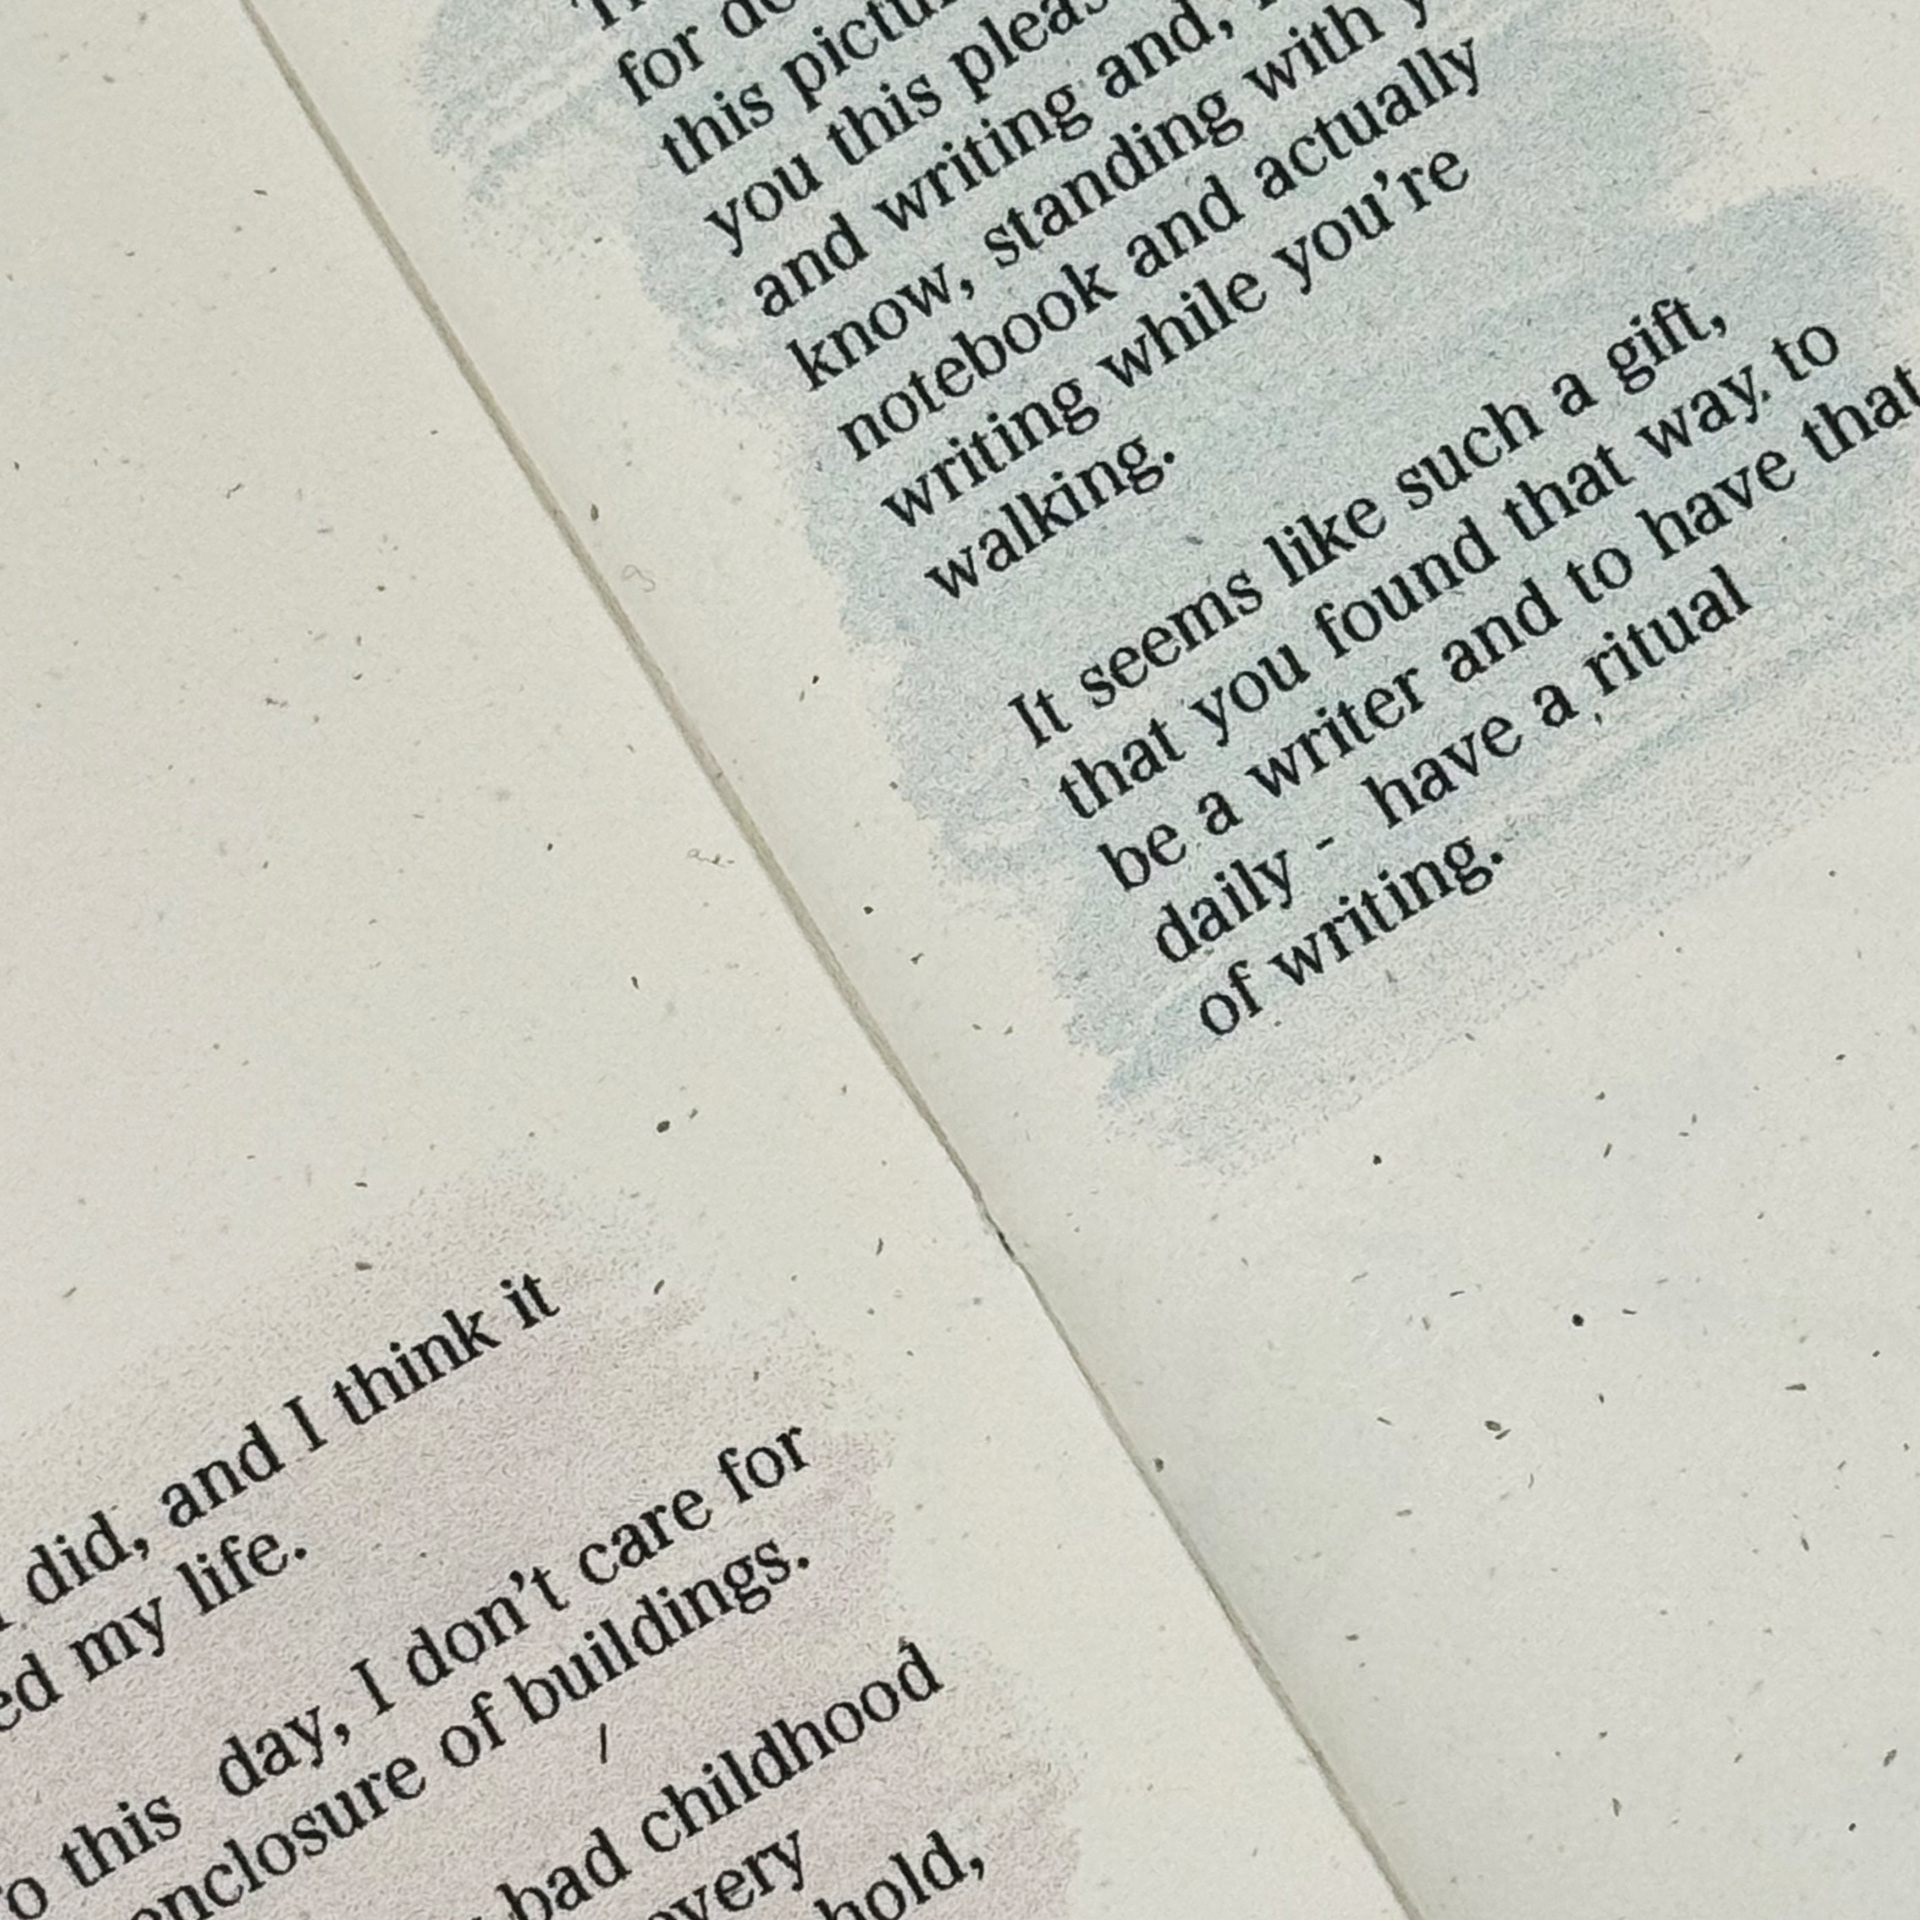 did, and I think it
my life.
this  day, I don't care for
enclosure of buildings.
bad childhood
every
hold,
for
this
you this
and writing and,
know, standing with
notebook and actually
writing while you're
walking.
It seems like such a gift,
that you found that way. to
be a writer and to have that
daily -  have a ritual
of writing.